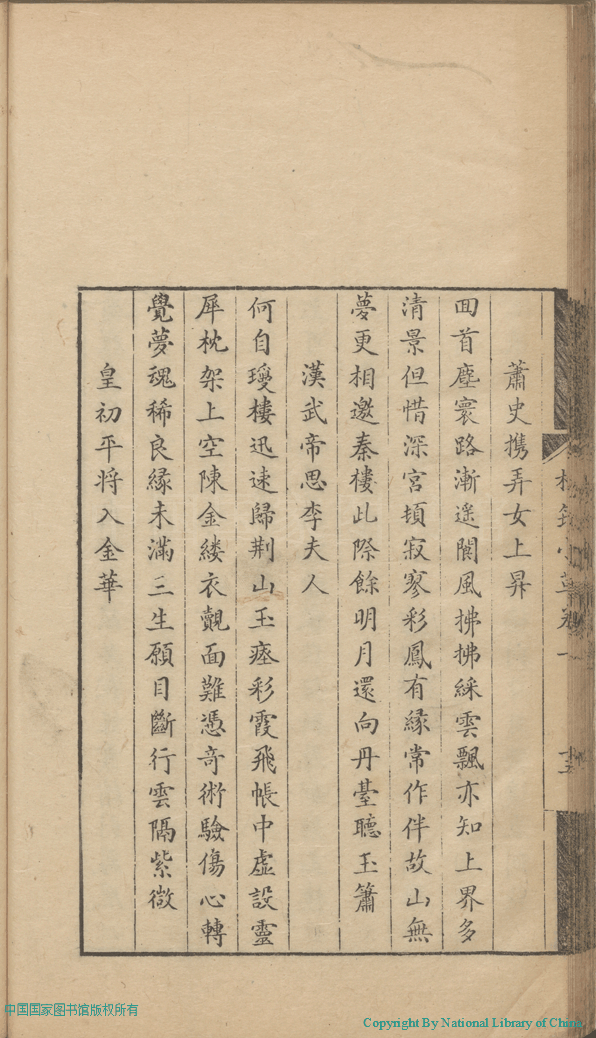 蕭史攜弄女上昇
囬首塵寰路漸遙閬風拂拂綵雲飄亦知上界多
清景但惜深宮頓寂寥彩鳳有緣常作伴故山無
夢更相邀秦樓此際餘明月還向丹臺聽玉簫
漢武帝思李夫人
何自瓊樓迅速歸荆山玉瘞彩霞飛帳中虛設靈
犀枕架上空陳金縷衣覿面難憑奇術驗傷心轉
覺夢魂稀良緣未滿三生願目斷行雲隔紫微
皇初平將入金華
中国国家图书馆版权所有
Copyright By National Library of China